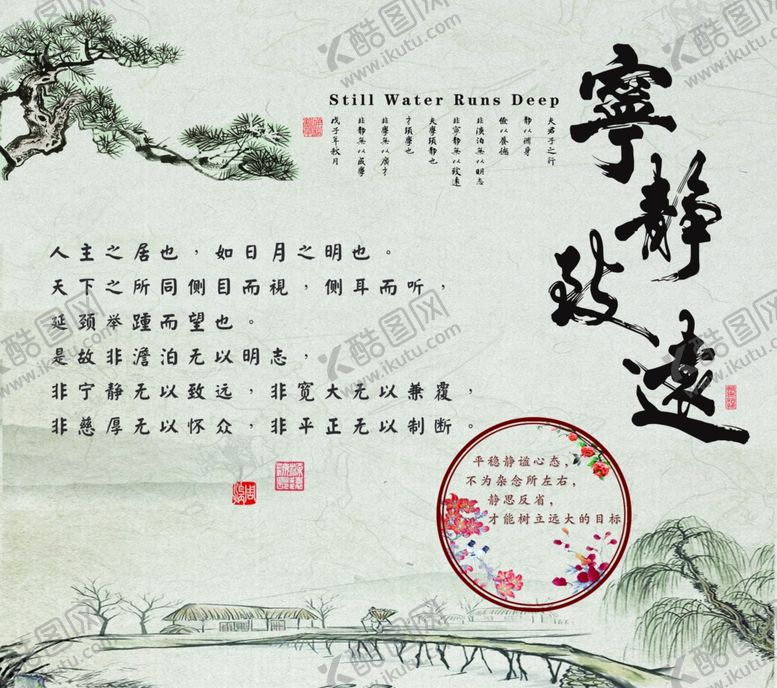 Still Water Runs Deep
寧靜致遠
夫君子之行
靜以修身
儉以養德
非淡泊無以明志
非寧靜無以致遠
夫學須靜也
才須學也
非學無以廣才
非靜無以成學
戊子年秋月
人主之居也，如日月之明也。
天下之所同側目而視，側耳而听，
延颈举踵而望也。
是故非澹泊无以明志，
非宁静无以致远，非宽大无以兼覆，
非慈厚无以怀众，非平正无以制断。
平稳静谧心态，
不为杂念所左右，
静思反省，
才能树立远大的目标
酷图网
www.ikutu.com